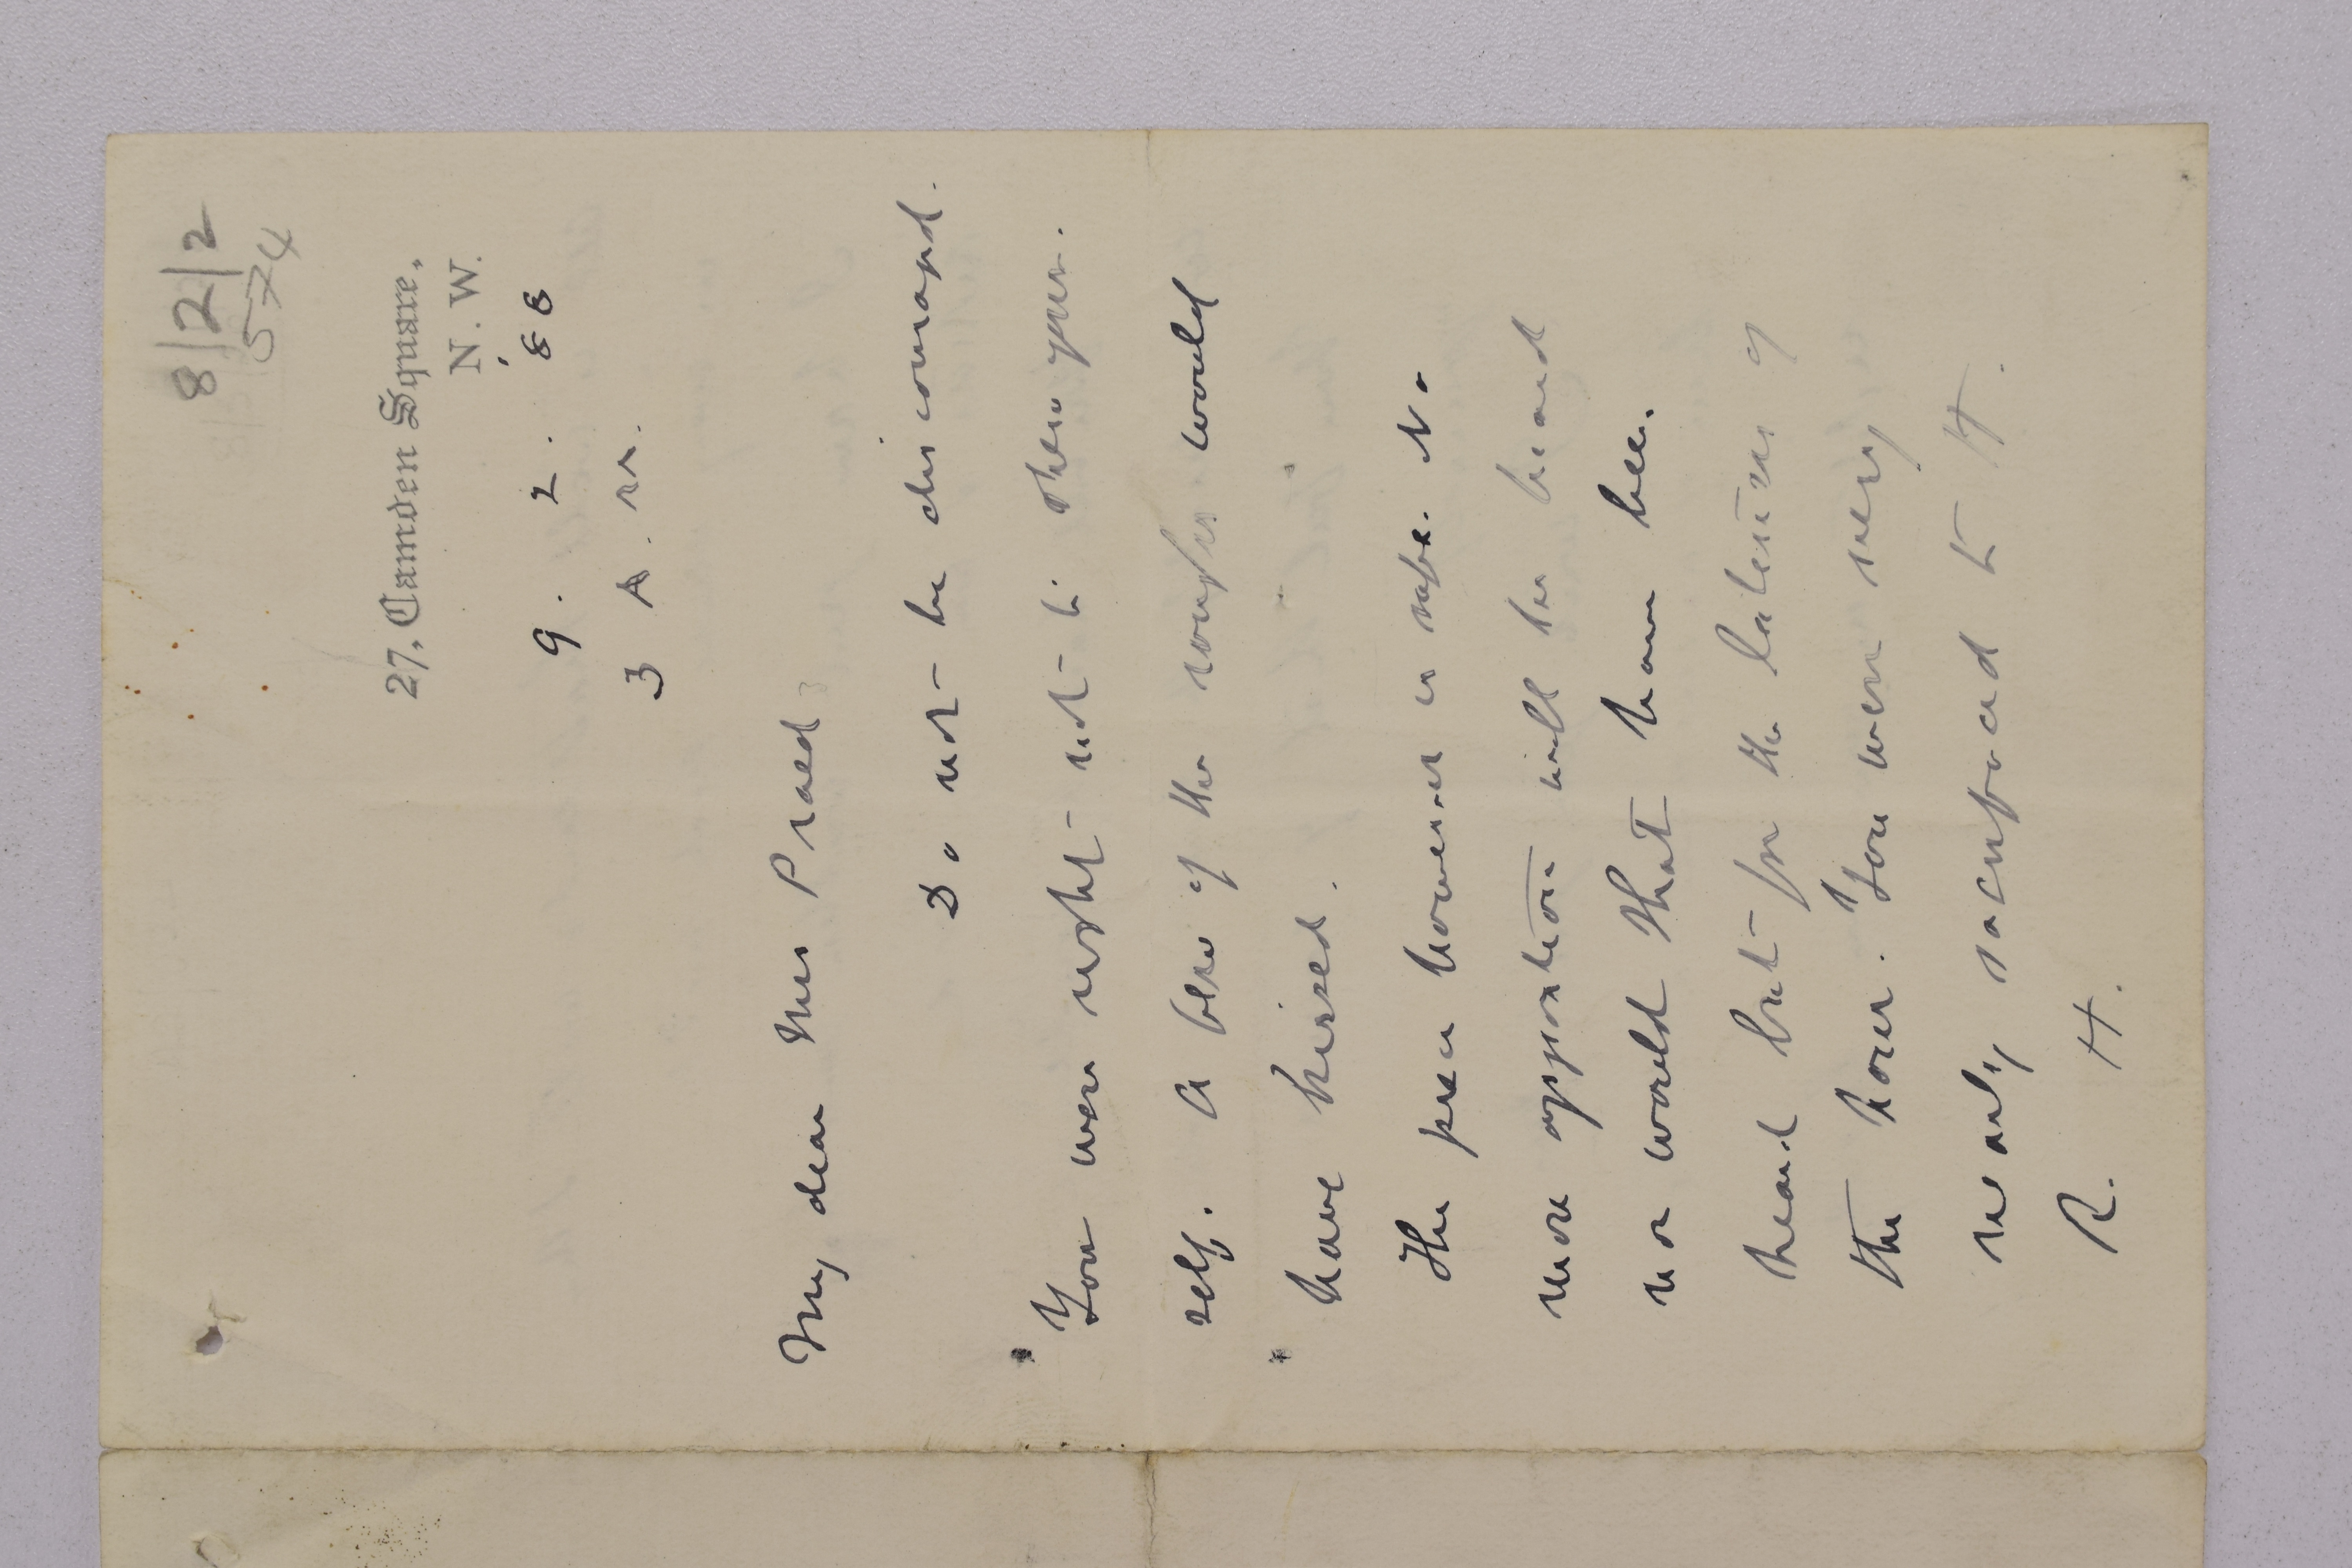 8/2/2
574
27, Camden Square,
N. W.
9. 2. '88
3 A. M.
My dear Mrs Praed
Do not be discouraged.
You were right not to show your
self. A blow of the would
have hissed.
The piece however is safe. No
more opposition will be heard
nor would that have been
heard but for the lateness of
the hour. You were very
nearly sacrificed to H.
R. H.